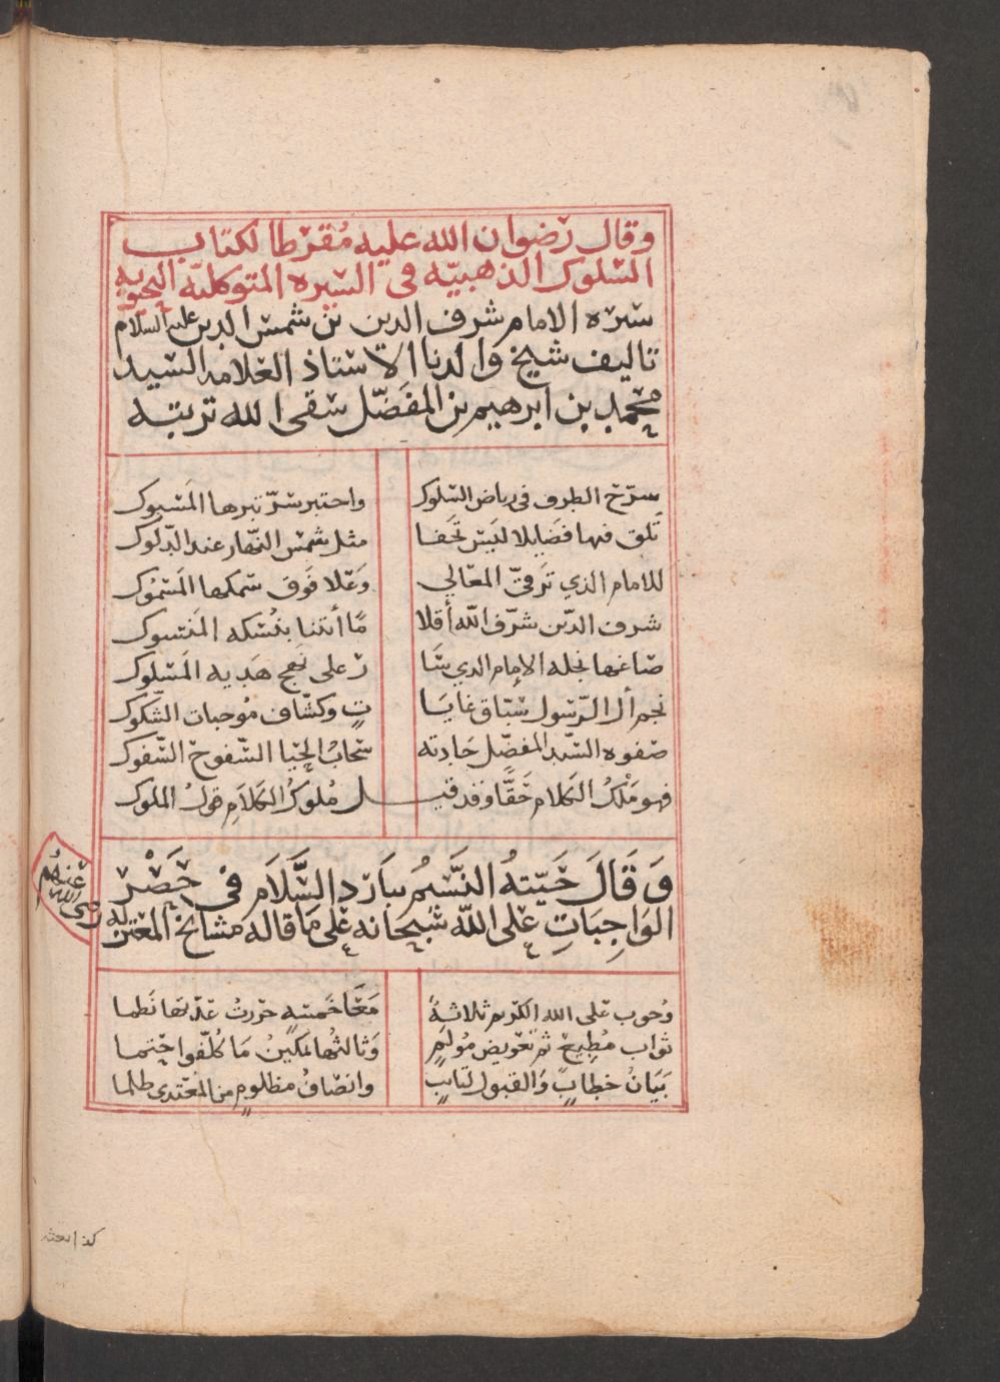 وقال رضوان الله عليه مُقرطا لكتاب
السلوك الذهبيّه في السيره المتوكليّه اليحيويه
سيره الامام شرف الدين بن شمس الدين عليه السلام
تاليف شيخ والدنا الاستاذ العلامه السيد
محمد بن ابرهيم بن المفضّل سقى الله تربته
سرّح الطرف في رياض السلوك واختبر سرّ تبرها المَسْبوك
تَلق فيها فضايلا ليس تخفا مثل شمس النهار عند الدّلوك
للامام الذي تَرقىّ المعَالي وَعَلا فَوق سَمكها المَسْمُوك
شرف الدّين شرّف الله أقلا مًا أتتنا بنُسْكه المَنسوك
صَاغها نجله الإمام الذي سَا رَ على نَهج هَديه المَسْلوك
نجم أل الرّسول سبّاق غايَا تٍ وكشّاف مُوجبات الشكوك
صفوه السّيد المفضّل جَادته سَحابُ الحيَا السَّفوح السَّفوك
فهو مَلْكُ الكَلام حَقًّا وقد قيـــل مُلوكُ الكَلَامِ قولُ الملوك
وَقَالَ حَيّتهُ النَّسَيمُ ببَارَد السَّلَام في حَصْر
الوَاجِبَاتِ عَلى اللّه سُبحانه عَلى مَا قاله مشايخ المعتزله
رضي الله عنهُم
وُجوب عَلى الله الكَريم ثلاثةً مَعًا خَمسَةٍ حرّرتُ عَدّتها نَظما
ثوَاب مُطيعٍ ثم تعَويض مُولَمٍ وَثالثُها تمكينُ مَا كُلّفوا حَتما
بَيَانُ خطابٍ وَالقبول لتَايبٍ وانصَافُ مظلومٍ من المُعتدى ظلما